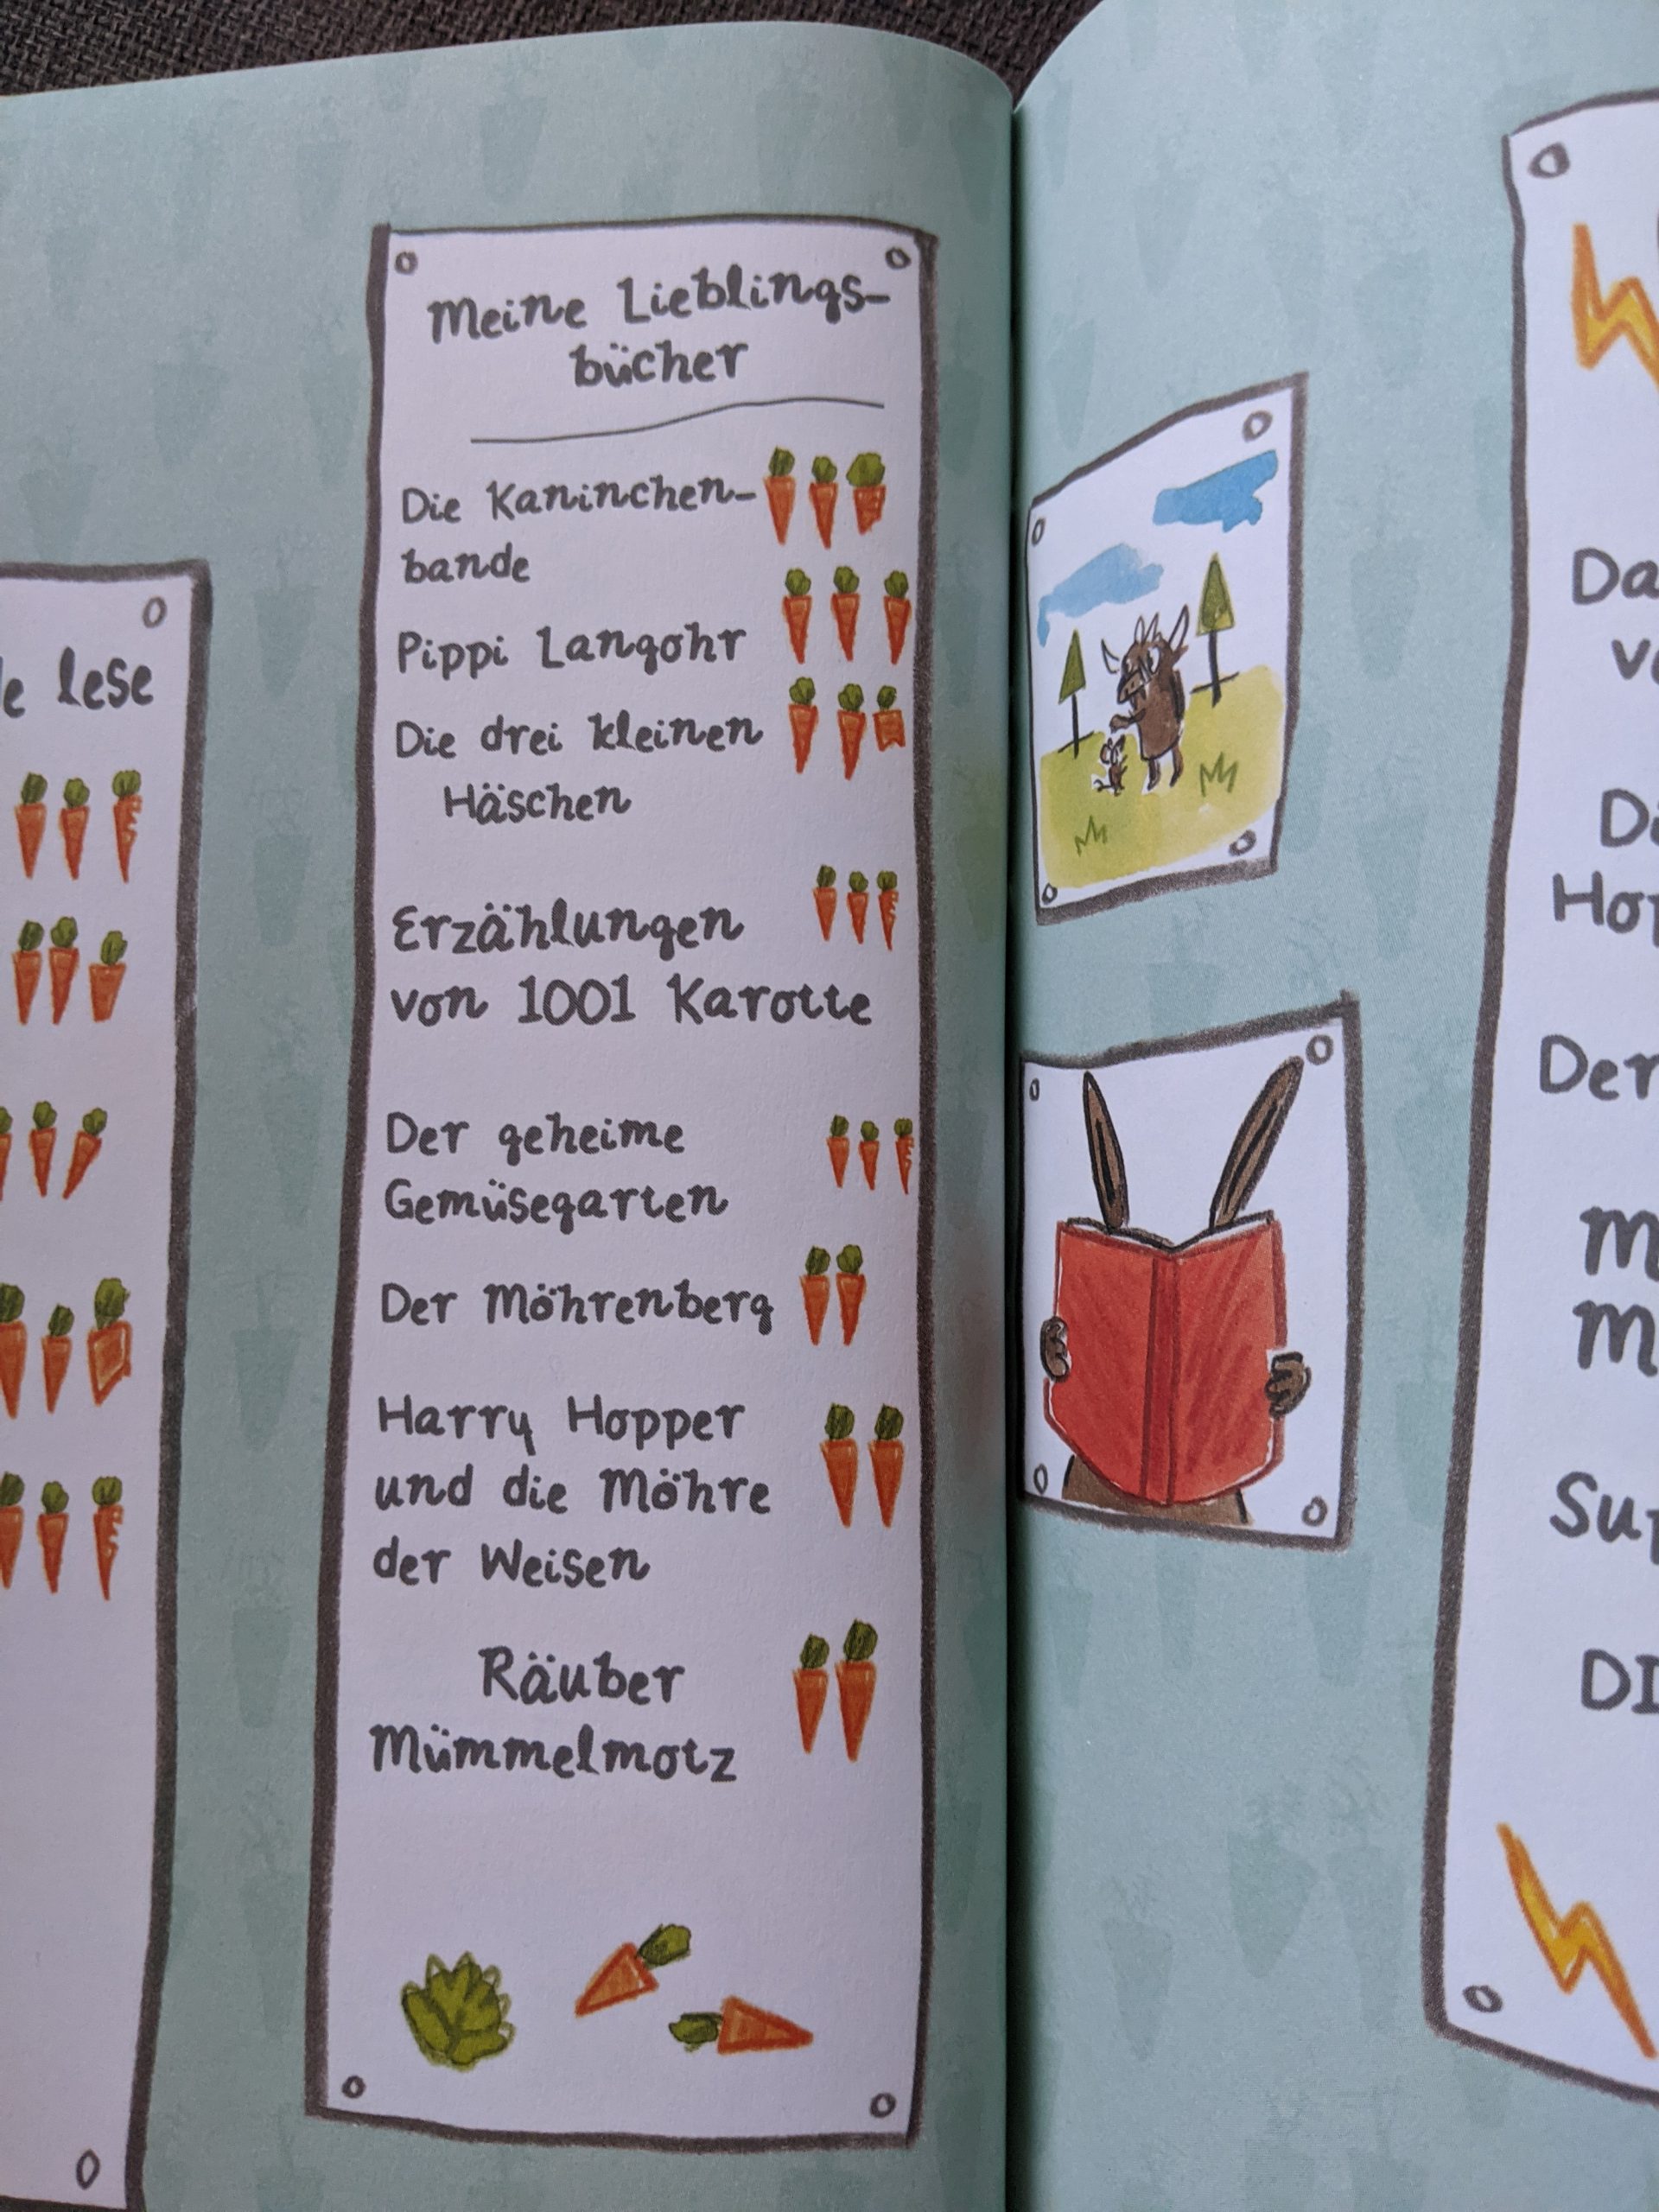 lese
Meine Lieblings-
bücher
Die Kaninchen-
bande
Pippi Langohr
Die drei kleinen
Häschen
Erzählungen
von 1001 Karotte
Der geheime
Gemüsegarten
Der Möhrenberg
Harry Hopper
und die Möhre
der Weisen
Räuber
Mümmelmotz
Der